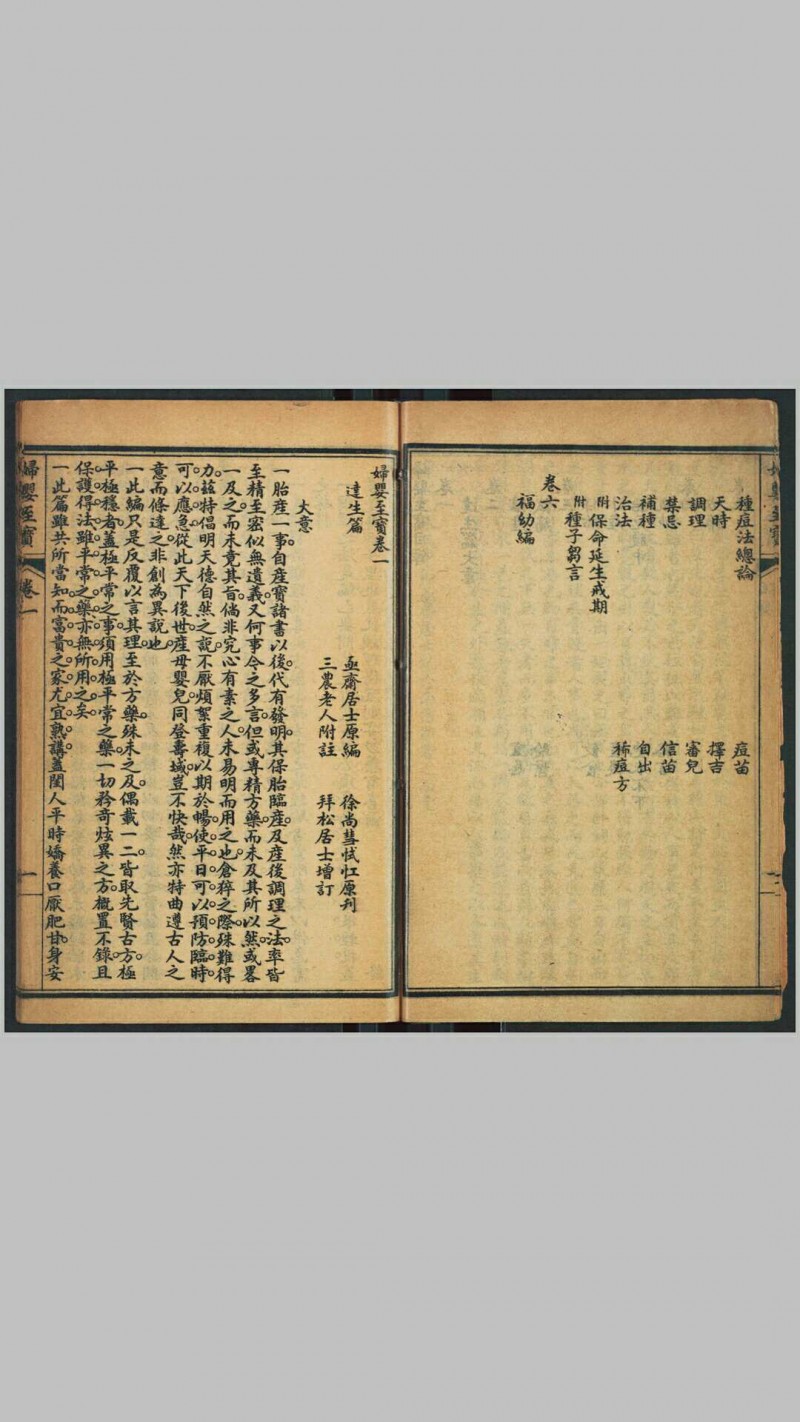 種痘法總論
痘苗
天時
擇吉
調理
審兒
禁忌
信苗
補種
自出
治法
稀痘方
附保命延生戒期
附種子芻言
卷六
福幼編
婦嬰至寶卷一
達生篇
亟齋居士原編
徐尚慧恡杠原刋
三農老人附註
拜松居士增訂
大意
一胎產一事。自產寶諸書以後。代有發明。其保胎臨產。及產後調理之法。率皆
至精至密。似無遺義。又何事今之多言。但或專精方藥。而未及其所以然。或畧
一及之。而未竟其旨。倘非究心有素之人。未易明而用之也。倉猝之際。殊難得
力。茲特倡明天德自然之說。不厭煩絮重複。以期於暢。使平日可以預防。臨時
可以應急。從此天下後世。產母嬰兒。同登壽域。豈不快哉。然亦特曲遵古人之
意而條達之。非創為異說也。
一此編只是反覆以言其理。至於方藥。殊未之及。偶載一二。皆取先賢古方。極
平極穩者。蓋極平常之事。須用極平常之藥。一切矜奇炫異之方。概置不錄。且
保護得法。雖平常之藥。亦無所用之矣。
一此篇雖共所當知。而富貴之家。尤宜熟講。蓋閨人平時嬌養。口厭肥甘。身安
婦嬰至寶
卷一
一